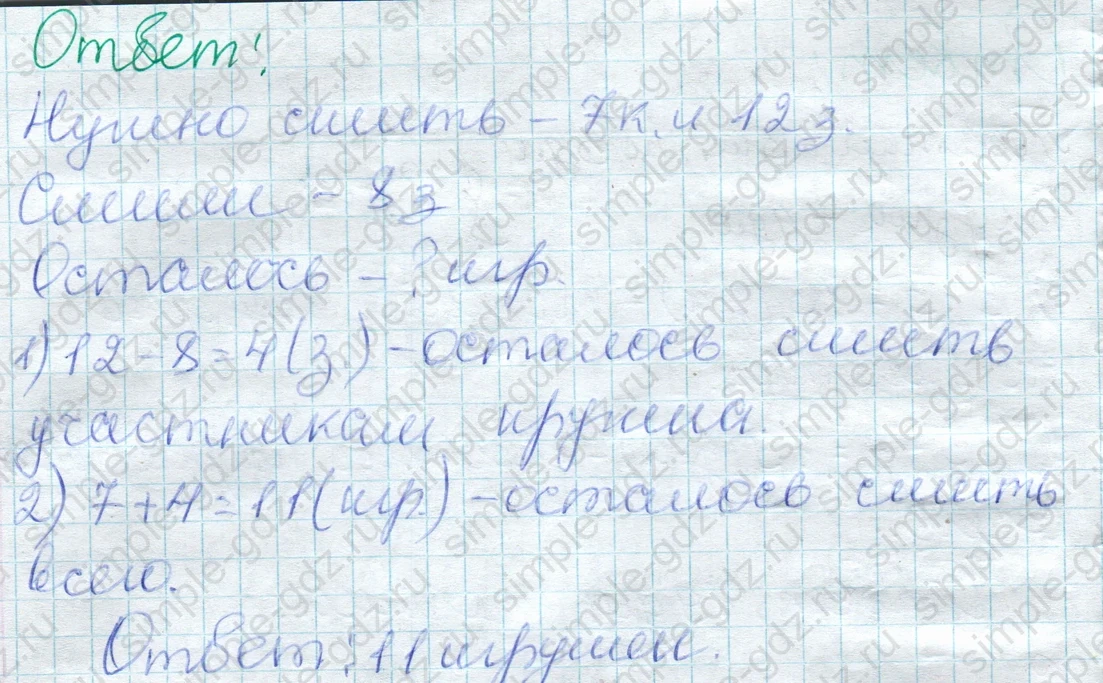 Ответ:
Нужно сшить – 7к. и 12з.
Сшили – 8з
Осталось – ? игр.
1) 12 – 8 = 4 (з.) – осталось сшить
участникам кружка.
2) 7 + 4 = 11 (игр.) – осталось сшить
всего.
Ответ: 11 игрушек.
simple-gdz.ru